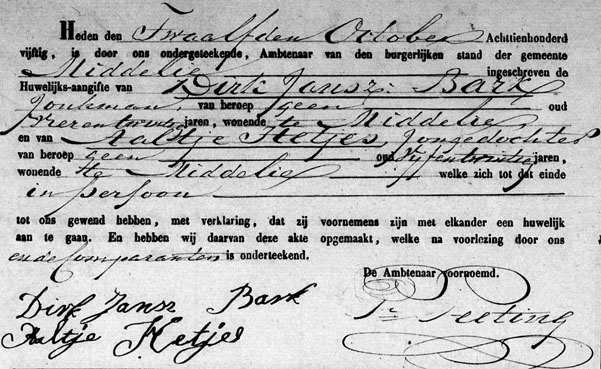 Heden den Twaalfden October Achttienhonderd
vijftig, is door ons ondergeteekende, Ambtenaar van den burgerlijken stand der gemeente
Middelie ingeschreven de
Huwelijks-aangifte van Dirk Jansz. Bark
Jonkman, van beroep geen oud
Vierentwintig jaren, wonende te Middelie
en van Aaltje Hetjes, Jongedochter
van beroep geen oud Vijfentwintig jaren,
wonende te Middelie welke zich tot dat einde
in persoon
tot ons gewend hebben, met verklaring, dat zij voornemens zijn met elkander een huwelijk
aan te gaan. En hebben wij daarvan deze akte opgemaakt, welke na voorlezing door ons
en de Comparanten is onderteekend.
De Ambtenaar voornoemd.
Dirk Jansz Bark
Aaltje Hetjes
Peeting